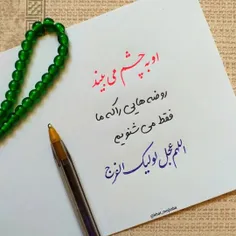 او به چشم می بیند
روضه هایی را که ما
فقط می شنویم
اللهم عجل لولیک الفرج